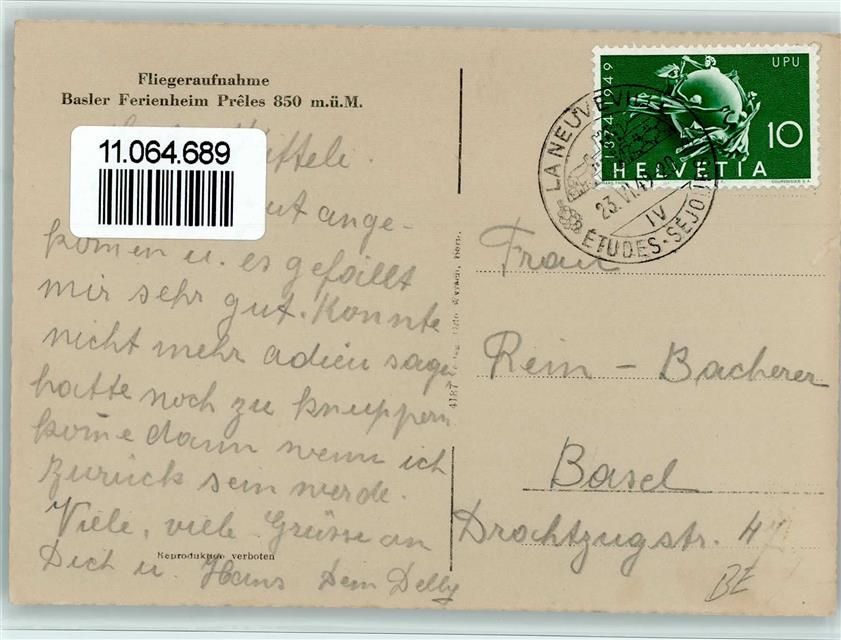 Fliegeraufnahme
Basler Ferienheim Prêles 850 m.ü.M.
11.064.689
ange-
komen u. es gefällt
mir sehr gut. Konnte
nicht mehr adieu sagen
hatte noch zu knuppern
kome dann wenn ich
zurück sein werde.
Viele, viele Grüsse an
Dich u. Hans Dein Delly
Reproduktion verboten
4187
UPU
1874 1949
10
HELVETIA
LA NEUVEVILLE
23. VI. 49
IV
ÉTUDES-SÉJOUR
Frau
Rein - Bacherer
Basel
Drahtzugstr. 47
BE